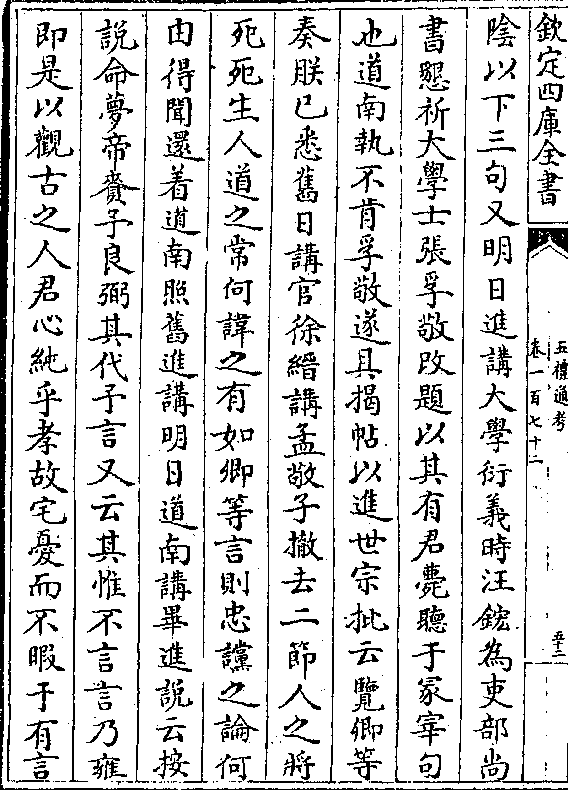 欽定四庫全書
五禮通考
卷一百七十二
五十二
陰以下三句又明日進講大學衍義時汪鋐為吏部尚
書懇祈大學士張孚敬改題以其有君薨聽于冢宰句
也道南執不肯孚敬遂具揭帖以進世宗批云覽卿等
奏朕已悉舊日講官徐縉講孟敬子撤去二節人之將
死死生人道之常何諱之有如卿等言則忠讜之論何
由得聞還着道南照舊進講明日道南講畢進說云按
說命夢帝賚予良弼其代予言又云其惟不言言乃雍
即是以觀古之人君心純乎孝故宅憂而不暇于有言